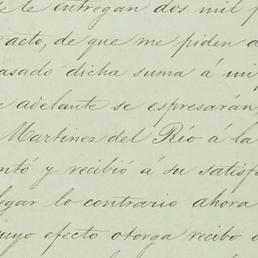 se le entregan dos mil p
acto, de que me piden a
asado dicha suma á mi
e adelante se espresarán,
Martinez del Rio á la
ntó y recibió á su satisf
legar lo contrario ahora
uyo efecto otorga recibo